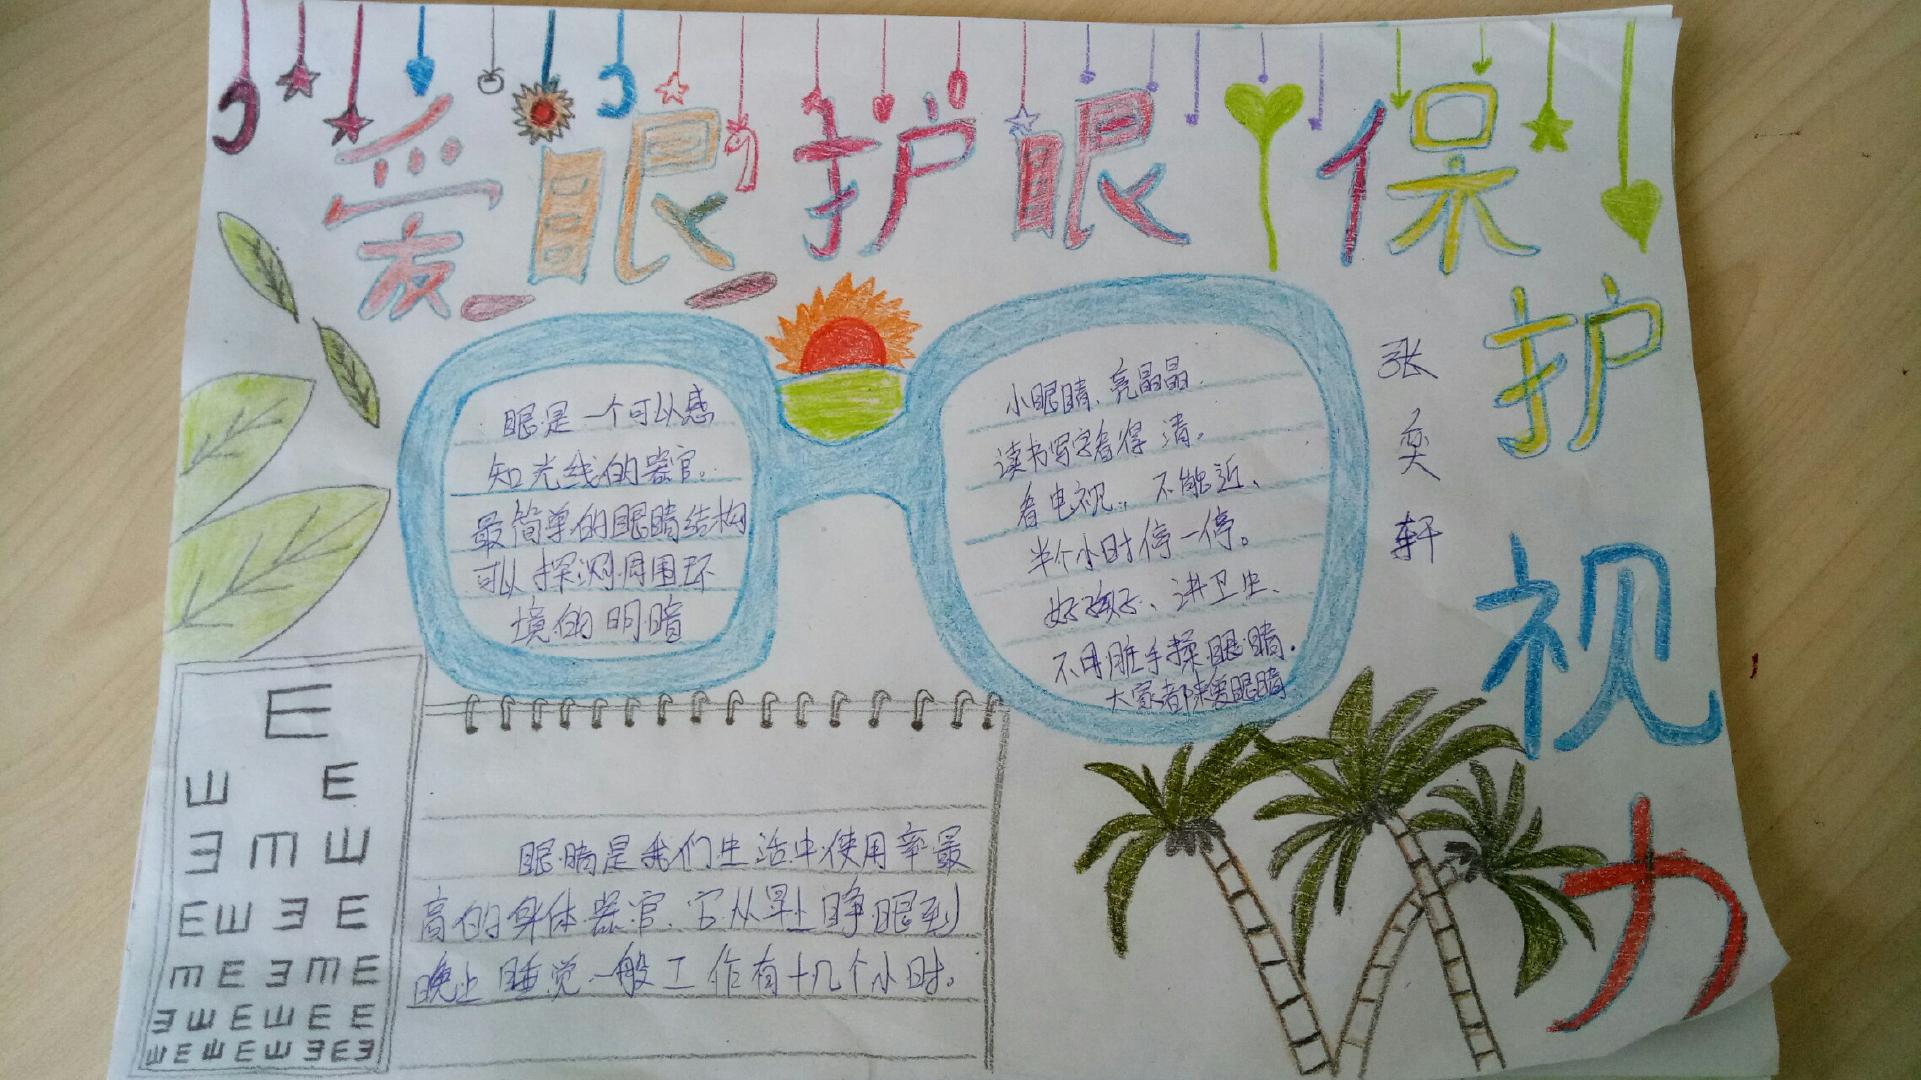 爱眼护眼保护视力
张奕轩
眼是一个可以感
知光线的器官。
最简单的眼睛结构
可以探测周围环
境的明暗
小眼睛、亮晶晶.
读书写字看得清。
看电视.,不能近、
半个小时停一停。
好孩子、讲卫生、
不用脏手揉眼睛.
大家都来爱眼睛
E
E E
E E E
E E E E
E E E E E
E E E E E E
E E E E E E E E
眼睛是我们生活中使用率最
高的身体器官.它从早上睁眼到
晚上睡觉一般工作有十几个小时。